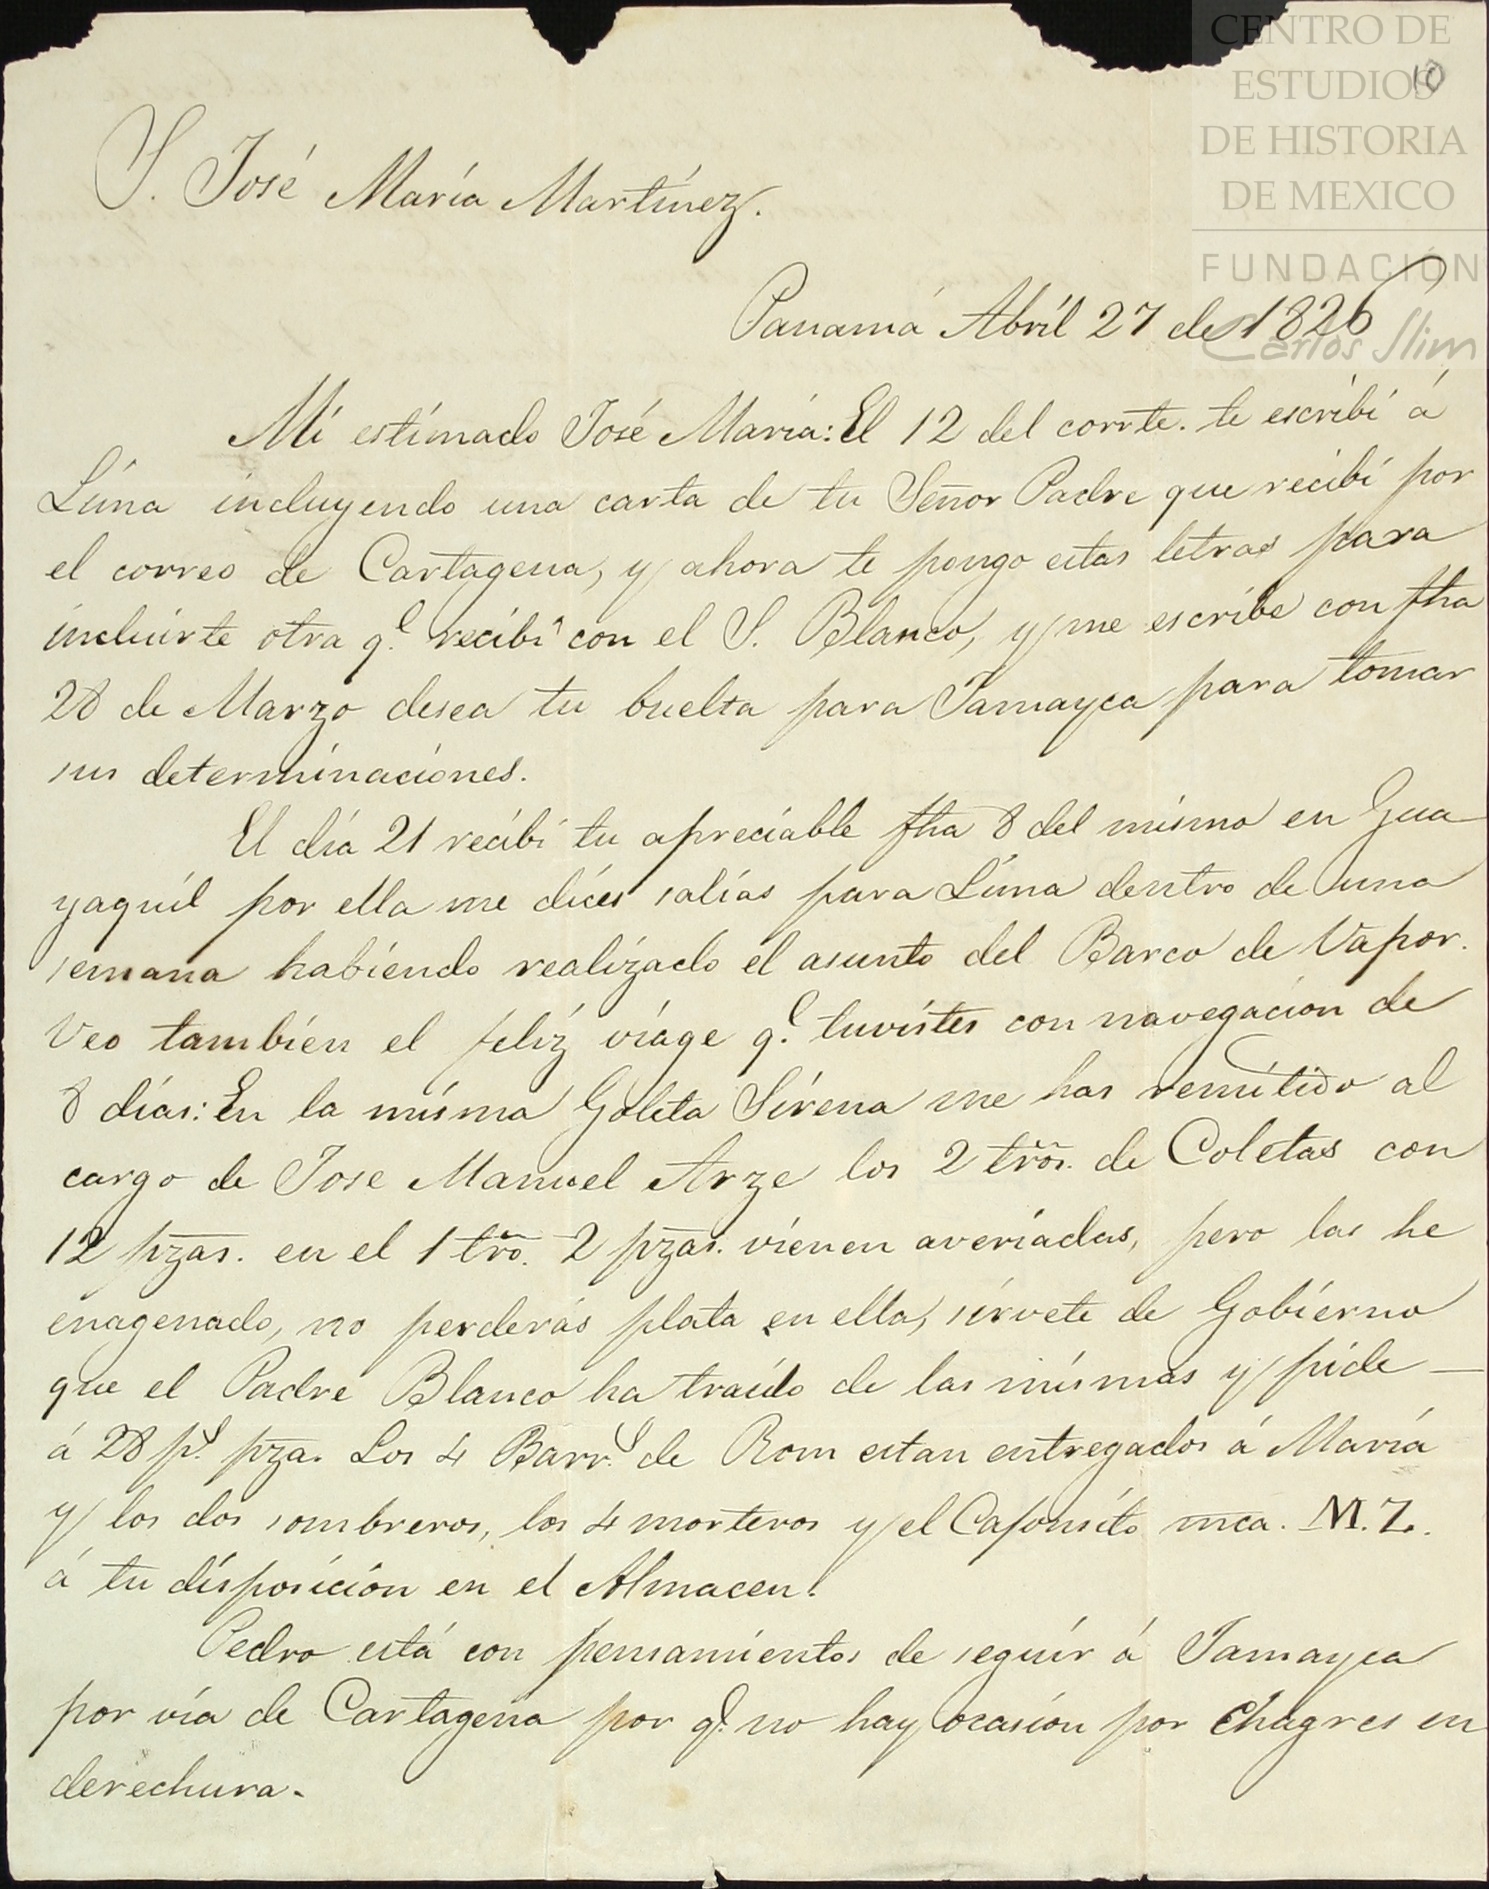 CENTRO DE
ESTUDIOS
DE HISTORIA
DE MEXICO
FUNDACIÓN
Carlos Slim
10
S. José María Martínez.
Panamá Abril 27 de 1826
Mi estimado José María: El 12 del corrte. te escribí á
Lima incluyendo una carta de tu Señor Padre que recibí por
el correo de Cartagena, y ahora te pongo estas letras para
incluirte otra q.e recibí con el S. Blanco, y me escribe con fha
28 de Marzo desea tu buelta para Jamayca para tomar
sus determinaciones.
El día 21 recibí tu apreciable fha 8 del mismo en Gua
yaquil por ella me dices salías para Lima dentro de una
semana habiendo realizado el asunto del Barco de Vapor.
Veo también el feliz viage q.e tuvistes con navegación de
8 días: En la misma Goleta Sirena me has remitido al
cargo de Jose Manuel Arze los 2 trõs. de Coletas con
12 pzas. en el 1 trõ. 2 pzas. vienen averiadas, pero las he
enagenado, no perderás plata en ella, sírvete de Gobierno
que el Padre Blanco ha traido de las mismas y pide —
á 28 p.s pza. Los 4 Barr.s de Rom estan entregados á María
y los dos sombreros, los 4 morteros y el Cajonsito mca. M.Z.
á tu disposición en el Almacen.
Pedro está con pensamientos de seguir á Jamayca
por vía de Cartagena por q.e no hay ocasión por Chagres en
derechura.